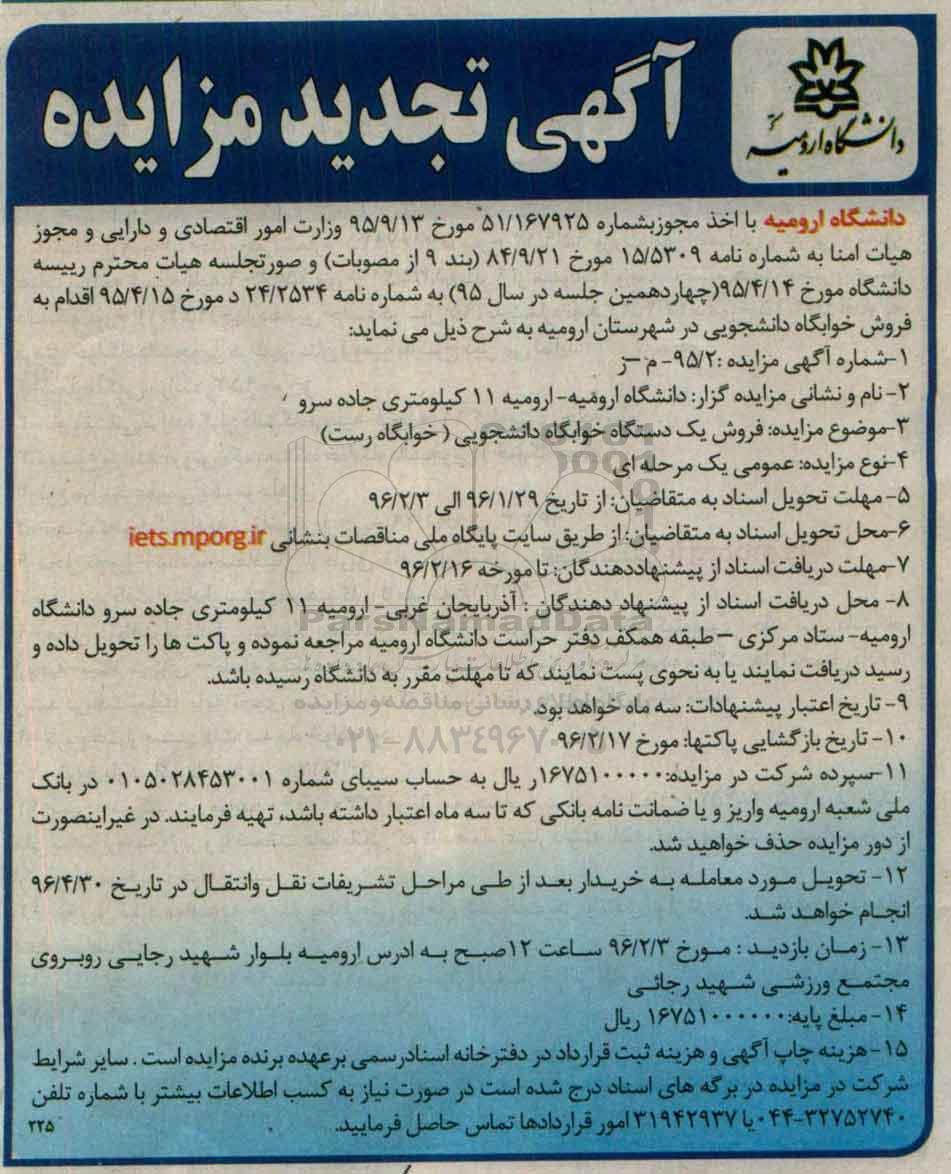 دانشگاه ارومیه
آگهی تجدید مزایده
دانشگاه ارومیه با اخذ مجوزبشماره ۵۱/۱۶۷۹۲۵ مورخ ۹۵/۹/۱۳ وزارت امور اقتصادی و دارایی و مجوز
هیات امنا به شماره نامه ۱۵/۵۳۰۹ مورخ ۸۴/۹/۲۱ (بند ۹ از مصوبات) و صورتجلسه هیات محترم رییسه
دانشگاه مورخ ۹۵/۴/۱۴(چهاردهمین جلسه در سال ۹۵) به شماره نامه ۲۴/۲۵۳۴ د مورخ ۹۵/۴/۱۵ اقدام به
فروش خوابگاه دانشجویی در شهرستان ارومیه به شرح ذیل می نماید:
۱-شماره آگهی مزایده :۹۵/۲- م –ز
۲- نام و نشانی مزایده گزار: دانشگاه ارومیه- ارومیه ۱۱ کیلومتری جاده سرو
۳-موضوع مزایده: فروش یک دستگاه خوابگاه دانشجویی ( خوابگاه رست)
۴-نوع مزایده: عمومی یک مرحله ای
۵- مهلت تحویل اسناد به متقاضیان: از تاریخ ۹۶/۱/۲۹ الی ۹۶/۲/۳
۶-محل تحویل اسناد به متقاضیان: از طریق سایت پایگاه ملی مناقصات بنشانی iets.mporg.ir
۷-مهلت دریافت اسناد از پیشنهاددهندگان: تا مورخه ۹۶/۲/۱۶
۸- محل دریافت اسناد از پیشنهاد دهندگان : آذربایجان غربی- ارومیه ۱۱ کیلومتری جاده سرو دانشگاه
ارومیه- ستاد مرکزی – طبقه همکف دفتر حراست دانشگاه ارومیه مراجعه نموده و پاکت ها را تحویل داده و
رسید دریافت نمایند یا به نحوی پست نمایند که تا مهلت مقرر به دانشگاه رسیده باشد.
۹- تاریخ اعتبار پیشنهادات: سه ماه خواهد بود.
۱۰- تاریخ بازگشایی پاکتها: مورخ ۹۶/۲/۱۷
۱۱-سپرده شرکت در مزایده:۱۶۷۵۱۰۰۰۰۰ر یال به حساب سیبای شماره ۰۱۰۵۰۲۸۴۵۳۰۰۱ در بانک
ملی شعبه ارومیه واریز و یا ضمانت نامه بانکی که تا سه ماه اعتبار داشته باشد، تهیه فرمایند. در غیراینصورت
از دور مزایده حذف خواهید شد.
۱۲- تحویل مورد معامله به خریدار بعد از طی مراحل تشریفات نقل وانتقال در تاریخ ۹۶/۴/۳۰
انجام خواهد شد.
۱۳- زمان بازدید : مورخ ۹۶/۲/۳ ساعت ۱۲صبح به ادرس ارومیه بلوار شهید رجایی روبروی
مجتمع ورزشی شهید رجائی
۱۴- مبلغ پایه: ۱۶۷۵۱۰۰۰۰۰۰ ریال
۱۵- هزینه چاپ آگهی و هزینه ثبت قرارداد در دفترخانه اسنادرسمی برعهده برنده مزایده است . سایر شرایط
شرکت در مزایده در برگه های اسناد درج شده است در صورت نیاز به کسب اطلاعات بیشتر با شماره تلفن
۰۴۴-۳۲۷۵۲۷۴۰ یا ۳۱۹۴۲۹۳۷ امور قراردادها تماس حاصل فرمایید.
۲۲۵
ParsNamadData
۰۲۱-۸۸۳۴۹۶۷۰